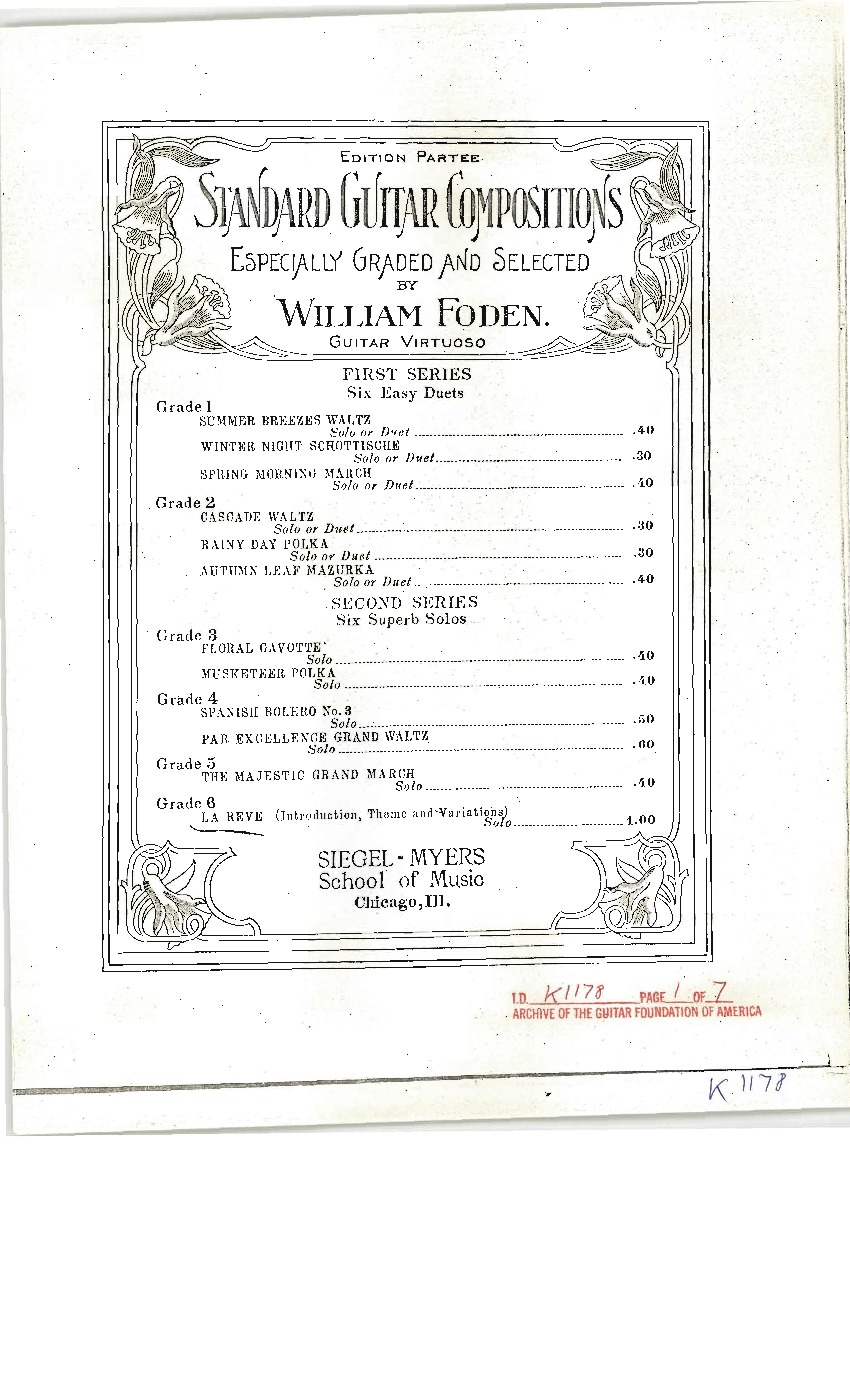 EDITION PARTEE.
STANDARD GUITAR COMPOSITIONS
ESPECIALLY GRADED AND SELECTED
BY
WILLIAM FODEN.
GUITAR VIRTUOSO
FIRST SERIES
Six Easy Duets
Grade 1
SUMMER BREEZES WALTZ
Solo or Duet .40
WINTER NIGHT SCHOTTISCHE
Solo or Duet .30
SPRING MORNING MARCH
Solo or Duet .40
Grade 2
CASCADE WALTZ
Solo or Duet .30
RAINY DAY POLKA
Solo or Duet .30
AUTUMN LEAF MAZURKA
Solo or Duet .40
SECOND SERIES
Six Superb Solos
Grade 3
FLORAL GAVOTTE
Solo .40
MUSKETEER POLKA
Solo .40
Grade 4
SPANISH BOLERO No. 3
Solo .50
PAR EXCELLENCE GRAND WALTZ
Solo .60
Grade 5
THE MAJESTIC GRAND MARCH
Solo .40
Grade 6
LA REVE (Introduction, Theme and Variations)
Solo 1.00
SIEGEL-MYERS
School of Music
Chicago, Ill.
I.D. K1178 PAGE 1 OF 7
ARCHIVE OF THE GUITAR FOUNDATION OF AMERICA
K 1178